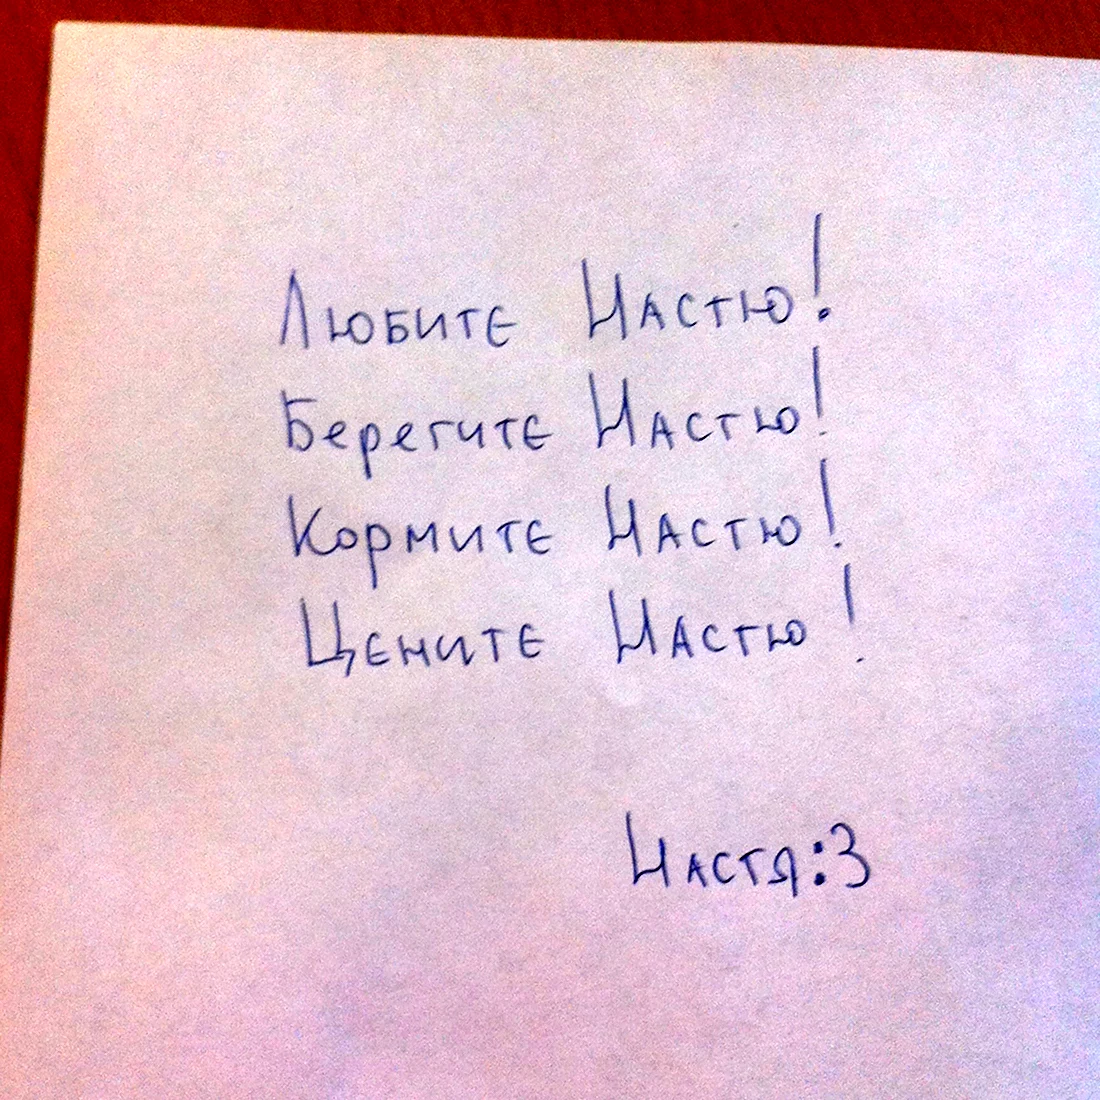 Любите Настю!
Берегите Настю!
Кормите Настю!
Цените Настю!
Настя:3